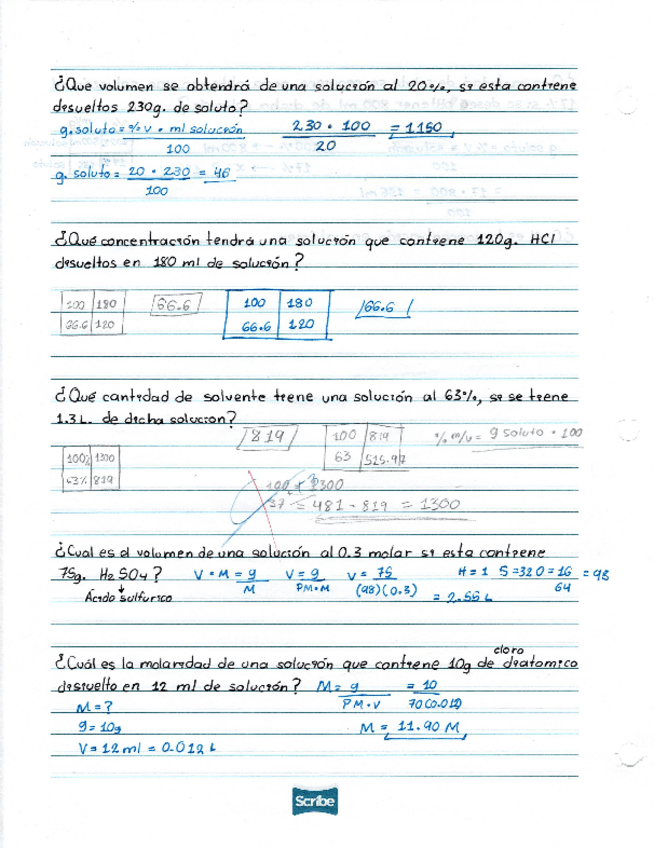 ¿Que volumen se obtendrá de una solución al 20%, si esta contiene
disueltos 230g. de soluto?
g. soluto = % v • ml solución / 100    230 • 100 / 20 = 1150
g. soluto = 20 • 230 / 100 = 46
¿Qué concentración tendrá una solución que contiene 120g. HCl
disueltos en 180 ml de solución?
100 180    66.6    100 180    66.6
66.6 120    66.6 120
¿Qué cantidad de solvente tiene una solución al 63%, si se tiene
1.3 L. de dicha solucion?
819    100 819    % m/v = g soluto • 100
100% 1300    63 515.97
63% 819
37 = 481 - 819 = 1300
¿Cual es el volumen de una solución al 0.3 molar si esta contiene
75g. H2SO4?    V • M = g / M    V = g / PM•M    V = 75 / (98)(0.3)    H = 1 S=32 O=16 = 98
64
Ácido sulfurico    = 2.55 L
cloro
¿Cuál es la molaridad de una solución que contiene 10g de diatomico
disuelto en 12 ml de solución?    M = g / PM • V    = 10 / 70(0.012)
M = ?
g = 10g    M = 11.90 M
V = 12 ml = 0.012 L
Scribe